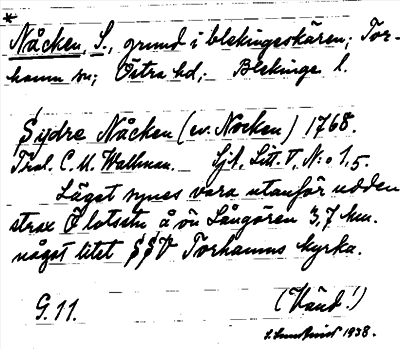 *
Nåcken, S., grund i blekingeskären; Tor-
hamn sn; Östra hd; Blekinge l.
Sydre Nåcken (ev. Nocken) 1768.
Trol. C. M. Wallman. Sjk. Litt. V, N:o 1,5.
Läget synes vara utanför udden
strax Ö lotsstn å ön Långören 3,7 km.
något litet SSV Torhamns kyrka.
G. 11. (Vänd!)
1938.